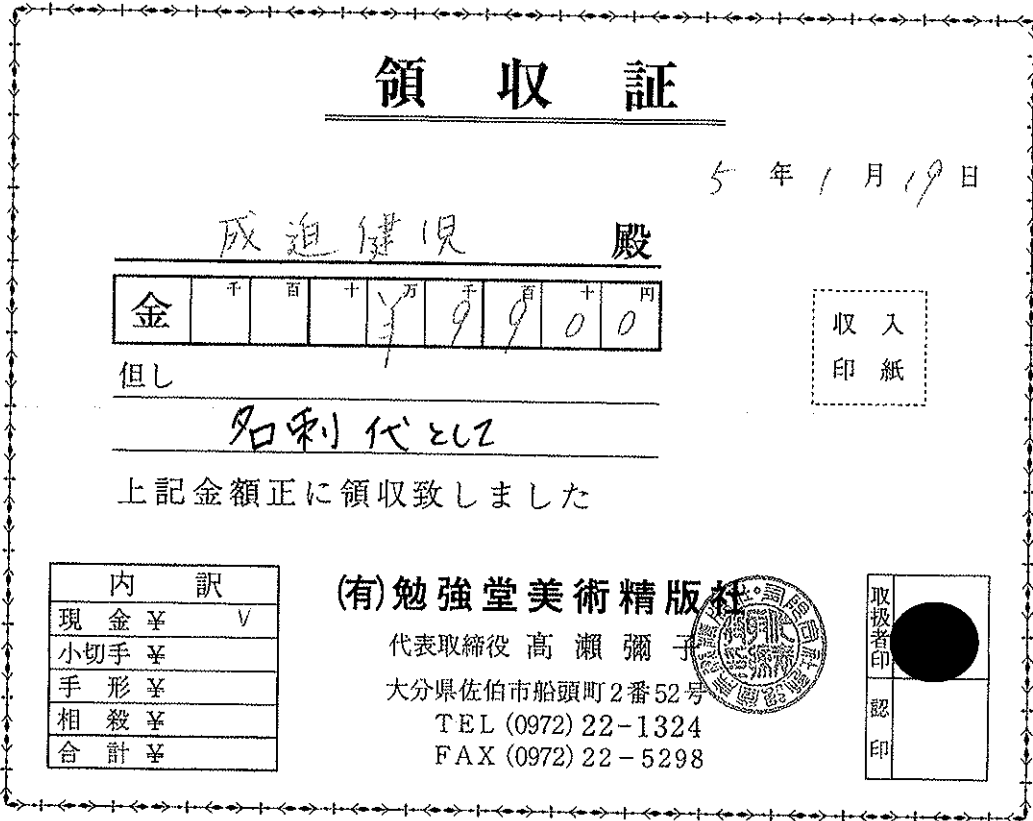 領収証
5年1月19日
成迫健児 殿
金 千 百 十 万 千 百 十 円
¥9900
但し
名刺代として
収入
印紙
上記金額正に領収致しました
内訳
現金 ¥ V
小切手 ¥
手形 ¥
相殺 ¥
合計 ¥
(有)勉強堂美術精版社
代表取締役 髙瀬彌子
大分県佐伯市船頭町2番52号
TEL (0972) 22-1324
FAX (0972) 22-5298
取扱者印
認印